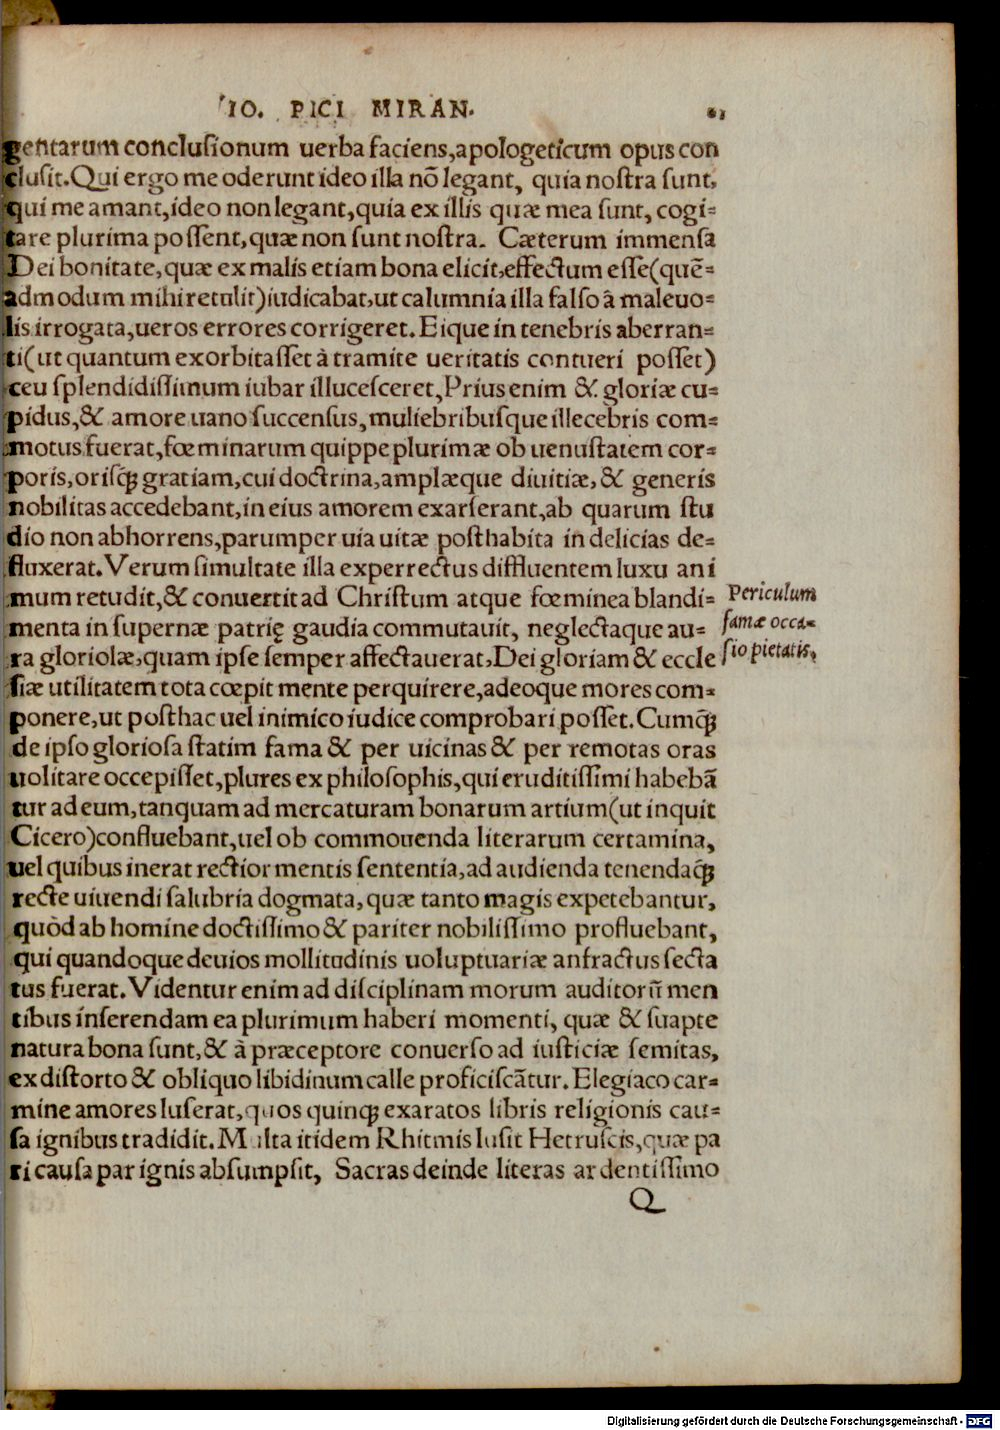 IO. PICI MIRAN. 61
gentarum conclusionum uerba faciens, apologeticum opus con
clusit. Qui ergo me oderunt ideo illa nō legant, quia nostra sunt,
qui me amant, ideo non legant, quia ex illis quæ mea sunt, cogi=
tare plurima possent, quæ non sunt nostra. Cæterum immensa
Dei bonitate, quæ ex malis etiam bona elicit, effectum esse (quē=
admodum mihi retulit) iudicabat, ut calumnia illa falso à maleuo=
lis irrogata, ueros errores corrigeret. Eique in tenebris aberran=
ti (ut quantum exorbitasset à tramite ueritatis contueri posset)
ceu splendidissimum iubar illucesceret, Prius enim & gloriæ cu=
pidus, & amore uano succensus, muliebribusque illecebris com=
motus fuerat, fœminarum quippe plurimæ ob uenustatem cor=
poris, orisq̃ gratiam, cui doctrina, amplæque diuitiæ, & generis
nobilitas accedebant, in eius amorem exarserant, ab quarum stu
dio non abhorrens, parumper uia uitæ posthabita in delicias de=
fluxerat. Verum simultate illa experrectus diffluentem luxu ani
mum retudit, & conuertit ad Christum atque fœminea blandi=
menta in supernæ patrię gaudia commutauit, neglectaque au=
ra gloriolæ, quam ipse semper affectauerat, Dei gloriam & eccle
siæ utilitatem tota cœpit mente perquirere, adeoque mores com=
ponere, ut posthac uel inimico iudice comprobari posset. Cumq̃
de ipso gloriosa statim fama & per uicinas & per remotas oras
uolitare occepisset, plures ex philosophis, qui eruditissimi habebā
tur ad eum, tanquam ad mercaturam bonarum artium (ut inquit
Cicero) confluebant, uel ob commouenda literarum certamina,
uel quibus inerat rectior mentis sententia, ad audienda tenendaq̃
recte uiuendi salubria dogmata, quæ tanto magis expetebantur,
quòd ab homine doctissimo & pariter nobilissimo profluebant,
qui quandoque deuios mollitudinis uoluptuariæ anfractus secta
tus fuerat. Videntur enim ad disciplinam morum auditorū men
tibus inserendam ea plurimum haberi momenti, quæ & suapte
natura bona sunt, & à præceptore conuerso ad iusticiæ semitas,
ex distorto & obliquo libidinum calle proficiscātur. Elegiaco car=
mine amores luserat, quos quinq̃ exaratos libris religionis cau=
sa ignibus tradidit. Multa itidem Rhitmis lusit Hetruscis, quæ pa
ri causa par ignis absumpsit, Sacras deinde literas ardentissimo
Q
Periculum
famæ occa=
sio pietatis.
Digitalisierung gefördert durch die Deutsche Forschungsgemeinschaft - DFG